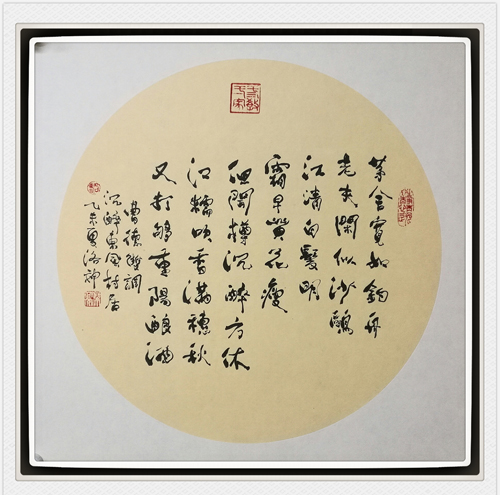 茅舍寬如釣舟
老夫閑似沙鷗
江清白髮明
霜早黃花瘦
但開樽沉醉方休
江糯吹香滿穗秋
又打夠重陽釀酒
曹德雙調
沉醉東風村居
乙未夏洛